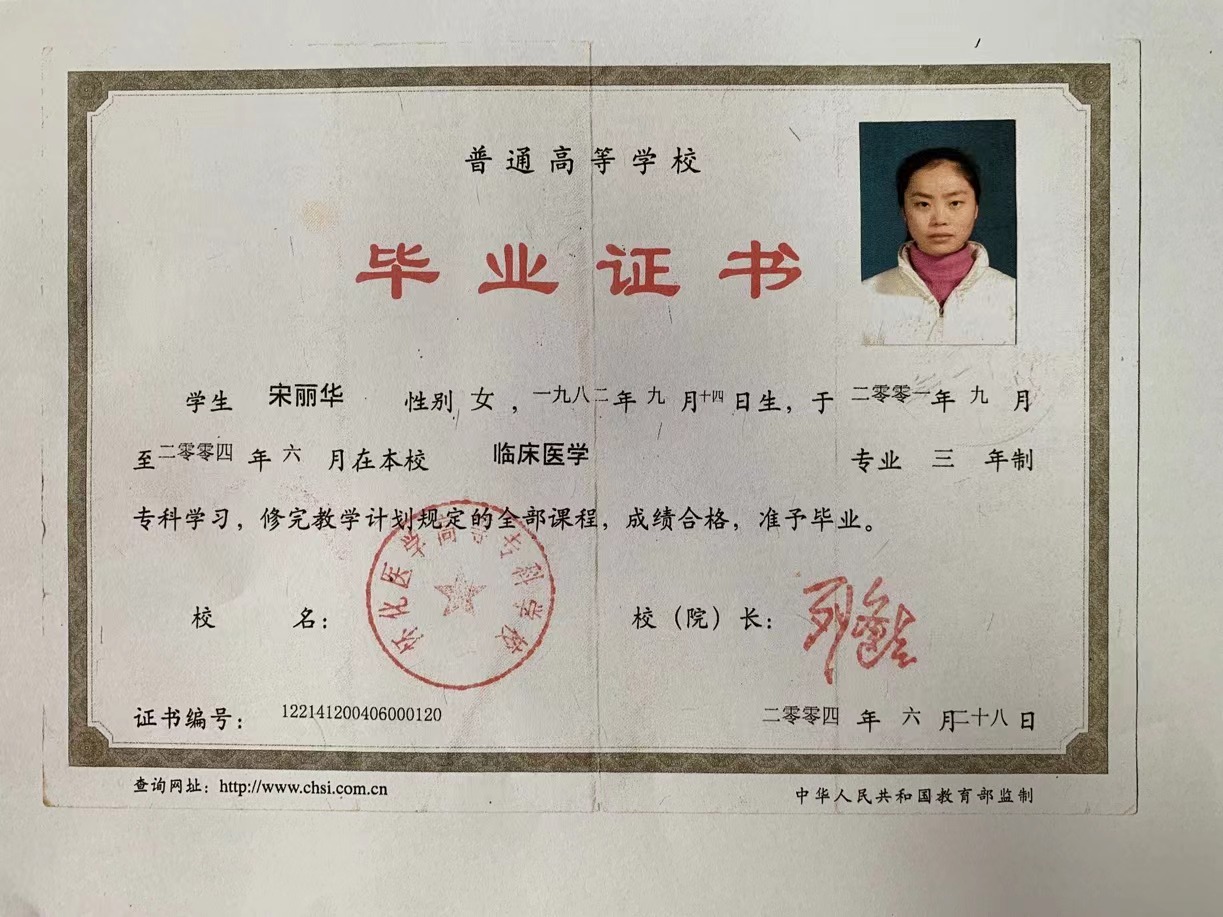 普通高等学校
毕业证书
学生 宋丽华 性别 女 ，一九八二年 九 月十四日生，于 二零零一年 九 月
至二零零四 年 六 月在本校 临床医学 专业 三 年制
专科学习，修完教学计划规定的全部课程，成绩合格，准予毕业。
怀化医学高等专科学校
校 名： 校（院）长：
证书编号： 122141200406000120 二零零四 年 六 月二十八日
查询网址：http://www.chsi.com.cn 中华人民共和国教育部监制